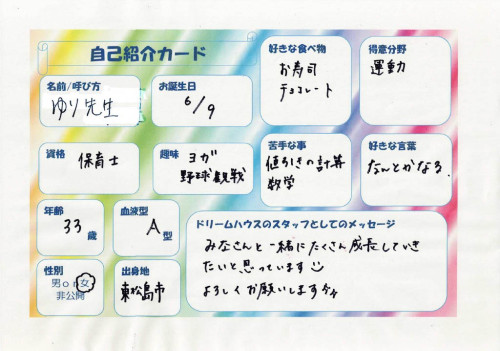 自己紹介カード
名前/呼び方
ゆり先生
お誕生日
6/9
好きな食べ物
お寿司
チョコレート
得意分野
運動
資格
保育士
趣味
ヨガ
野球観戦
苦手な事
値引きの計算
数学
好きな言葉
なんとかなる。
年齢
33歳
血液型
A型
性別
男or女
非公開
出身地
東松島市
ドリームハウスのスタッフとしてのメッセージ
みなさんと一緒にたくさん成長していき
たいと思っています
よろしくお願いします